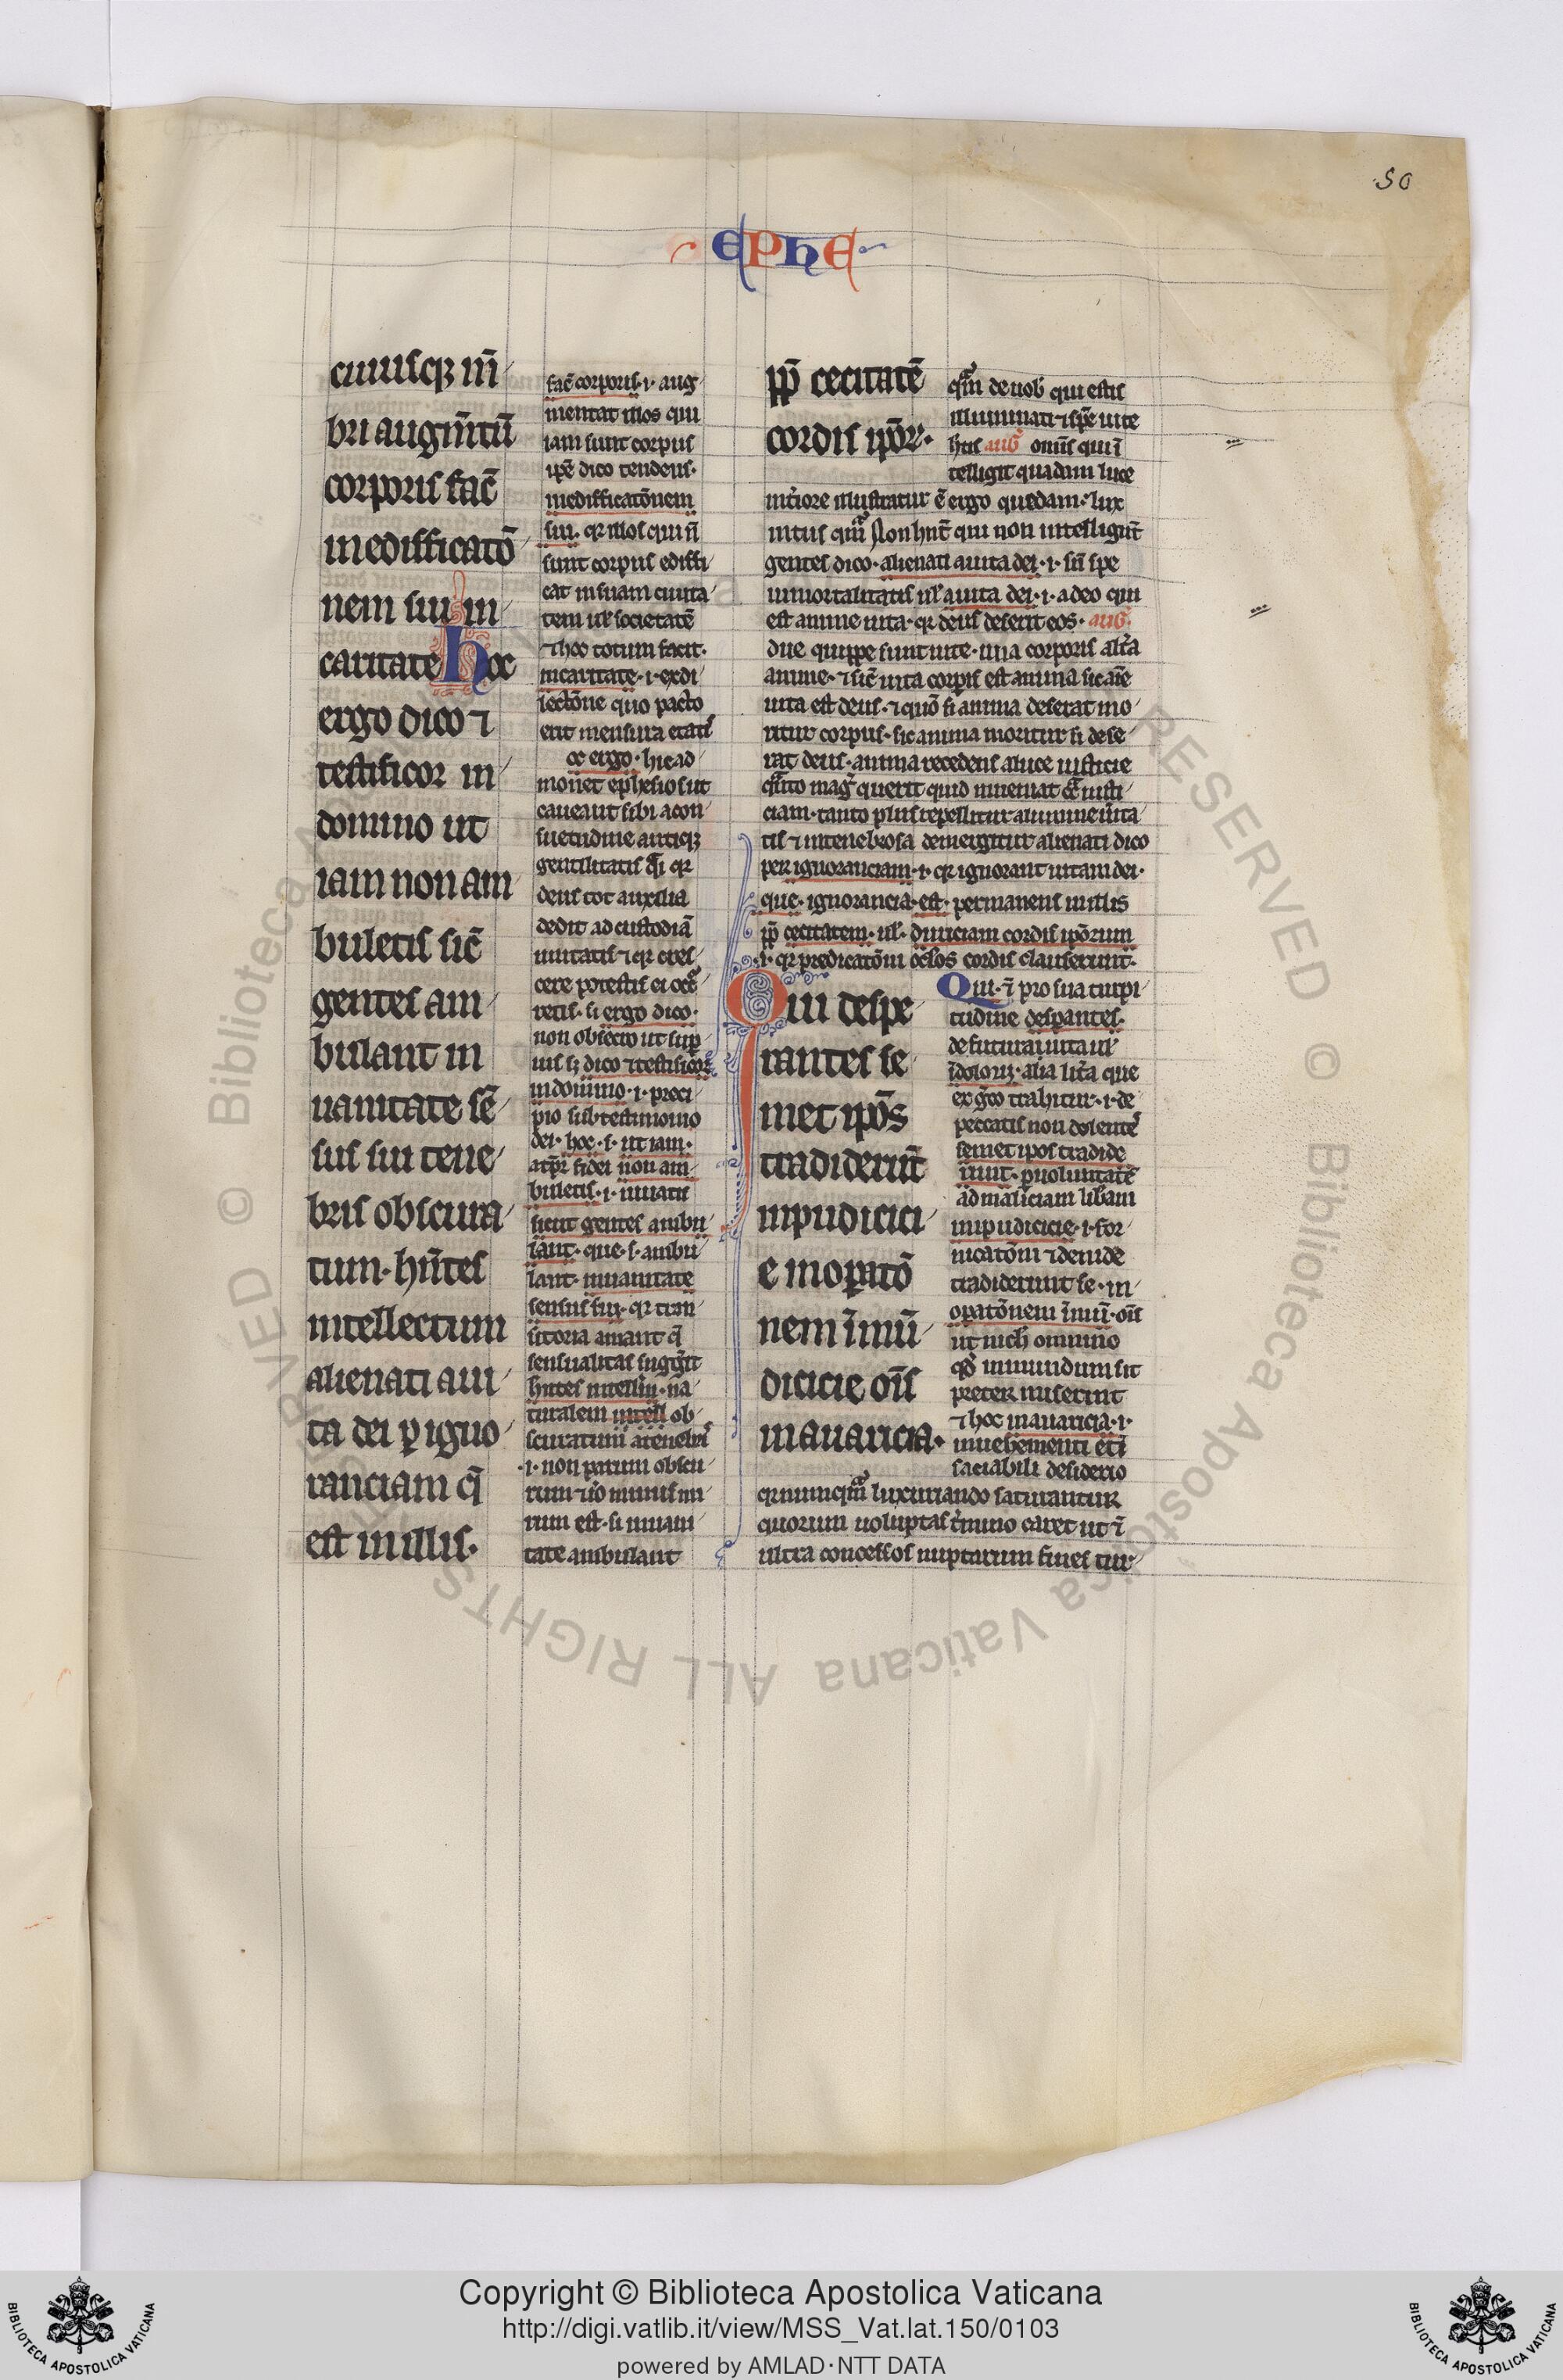 50
EPHE
cuiusq; m̄
bri augm̄tū
corporis fac̄
inedifficatō
nem sui in
caritate hoc
ergo dico ⁊
testificor in
domino ut
iam non am
buletis sic̄
gentes am
bulant in
uanitate sē
sus sui tene
bris obscura
tum· hn̄tes
intellectum
alienati a ui
ta dei p̱ igno
ranciam q̄
est in illis·
fac̄ corporis·i· aug
mentat illos qui
iam sunt corpus
ip̄e dico tendens·
inedifficatōnem
sui· qr illos qui n̄
sunt corpus ediffi
cat in suam ciuita
tem ul' societatē
⁊ hoc totum facit·
incaritate·i· ex di
lectōne quo pacto
erit mensura etatis
oc ergo· hic ad
monet ephesios ut
caueant sibi a con
suetudine antiq;
gentilitatis
deus tot auxilia
dedit ad custodiā
unitatis ⁊ qr cres
cere potestis
retis· si ergo dico·
non obsecro ut sup̱
ius s; dico ⁊ testificor
in domino·i· proci
pio sub testimonio
dei· hoc·s· ut iam·
fidei non am
buletis·i· uiuatis
sicut gentes ambu
lant· que·s· ambu
lant· inuanitate
sensus sui· qr tran
sitoria amant q̄
sensualitas suggerit
hn̄tes intell'm· na
turalem intell ob
scuratum a tenebris
·i· non parum obscu
rum ⁊ iō minus mi
rum est· si in uani
tate ambulant
pp̄ cecitatē
cordis ipōr·
qm̄ de uob' qui estis
illuminati ⁊ spe uite
hn̄s aug' omnis qui ī
telligit quadam luce
int'iore illustratur ē ergo quedam· lux
intus qm̄ Non hn̄t qui non intelligūt
gentes dico· alienati a uita dei·i· sn̄ spe
immortalitatis ul' a uita dei·i· a deo qui
est anime uita· qr deus deserit eos· aug'
due quippe sunt uite· una corporis alt'a
anime· ⁊ sic̄ uita corpis est anima sic aīe
uita est deus· ⁊ quō si anima deserat mo
ritur corpus· sic anima moritur si dese
rat deus· anima recedens a luce iusticie
q̄nto mag' querit quid inueniat c̄ iusti
ciam· tanto plus repellitur a lumine u'ita
tis ⁊ in tenebrosa demergitur alienati dico
per ignoranciam·i· qr ignorant uitam dei·
que· ignorancia· est· permanens in illis
pp̄ cecitatem· ul'· duriciam cordis ipōrum
·i· qr predicatōni oc̄los cordis clauserunt·
Qui despe
rantes se
met ipōs
tradiderūt
inpudici
e in op̱atō
nem īmū
dicicie oīs
in auaricia·
Qui· ⁊ pro sua turpi
tudine desp̱antes·
de futura uita ul'
īdolor;· alia lit'a que
ex g'co trahitur·i· de
peccatis non dolentes
semet ipos tradide
runt· p̱ uoluntatē
ad maliciam lib'am
impudicicie·i· for
nicatōni ⁊ deinde
tradiderunt se· in
op̱atōnem īmū· oīs
ut nich' omnino
qd' inmundum sit
preter miserint
⁊ hoc in auaricia·i·
in uehementi ⁊ ī
saciabili desiderio
qr nunqm̄ luxuriando saturantur
quorum uoluptas t'mino caret ut ī
ultra concessos nuptiarum fines tur
Copyright © Biblioteca Apostolica Vaticana
http://digi.vatlib.it/view/MSS_Vat.lat.150/0103
powered by AMLAD·NTT DATA
BIBLIOTECA APOSTOLICA VATICANA
BIBLIOTECA APOSTOLICA VATICANA